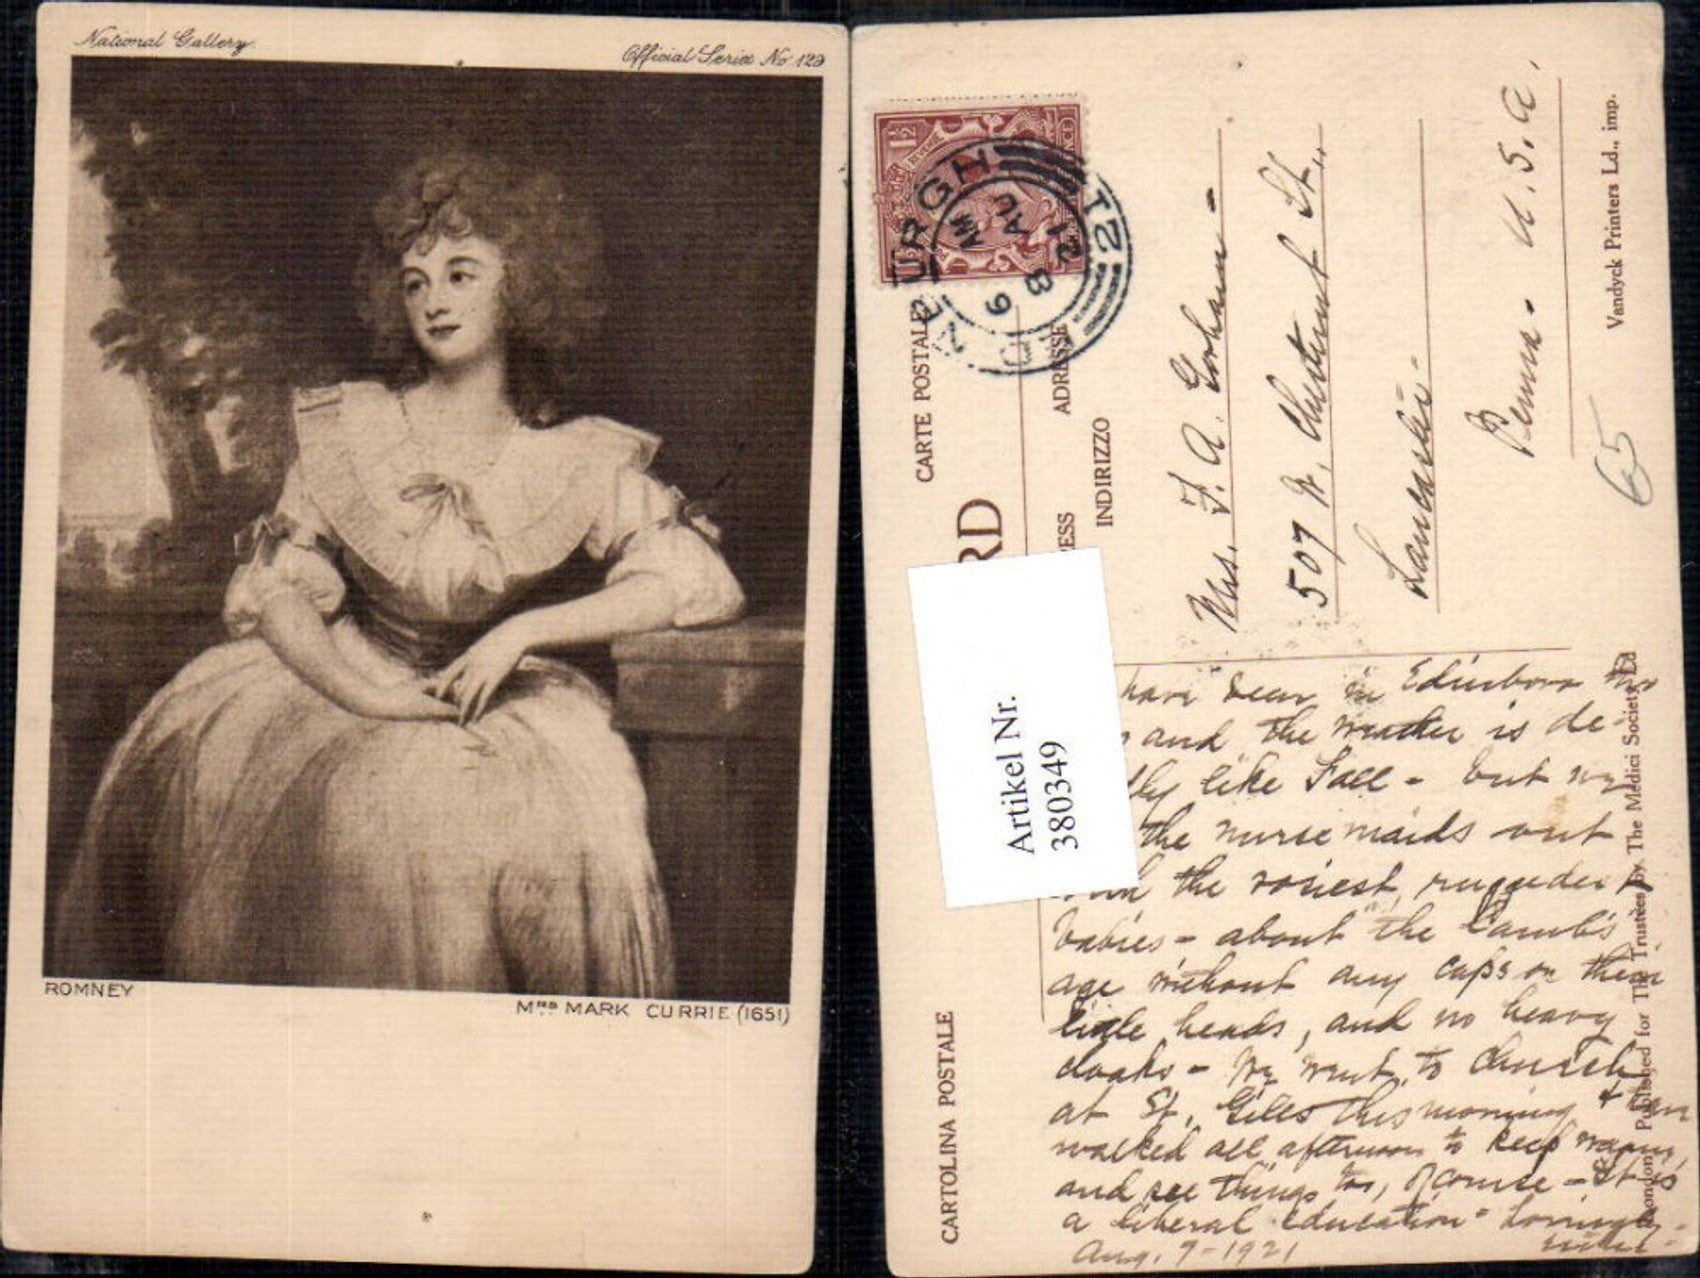 National Gallery.
Official Series No 129
ROMNEY
Mrs MARK CURRIE (1651)
1½
REVENUE
EDINBURGH
AM
8 AU
9 21
CARTE POSTALE
RD
ADRESSE
ESS
INDIRIZZO
Mrs. F. A. Gorham -
507 N. Chestnut St.,
Lancaster -
Penna - U.S.A.
65
Vandyck Printers Ld., imp.
Artikel Nr.
380349
CARTOLINA POSTALE
London: Published for The Trustees by The Medici Society Ld
have been in Edinboro
and the weather is de-
dly like Fall - but we
the nursemaids out
the rosiest, ruggedest
babies - about the Lamb's
age without any caps on their
little heads, and no heavy
cloaks - We went to church
at St. Giles this morning +
walked all afternoon to keep warm,
and see things too, of course - It is
a liberal education - Lovingly
Aug. 7 - 1921